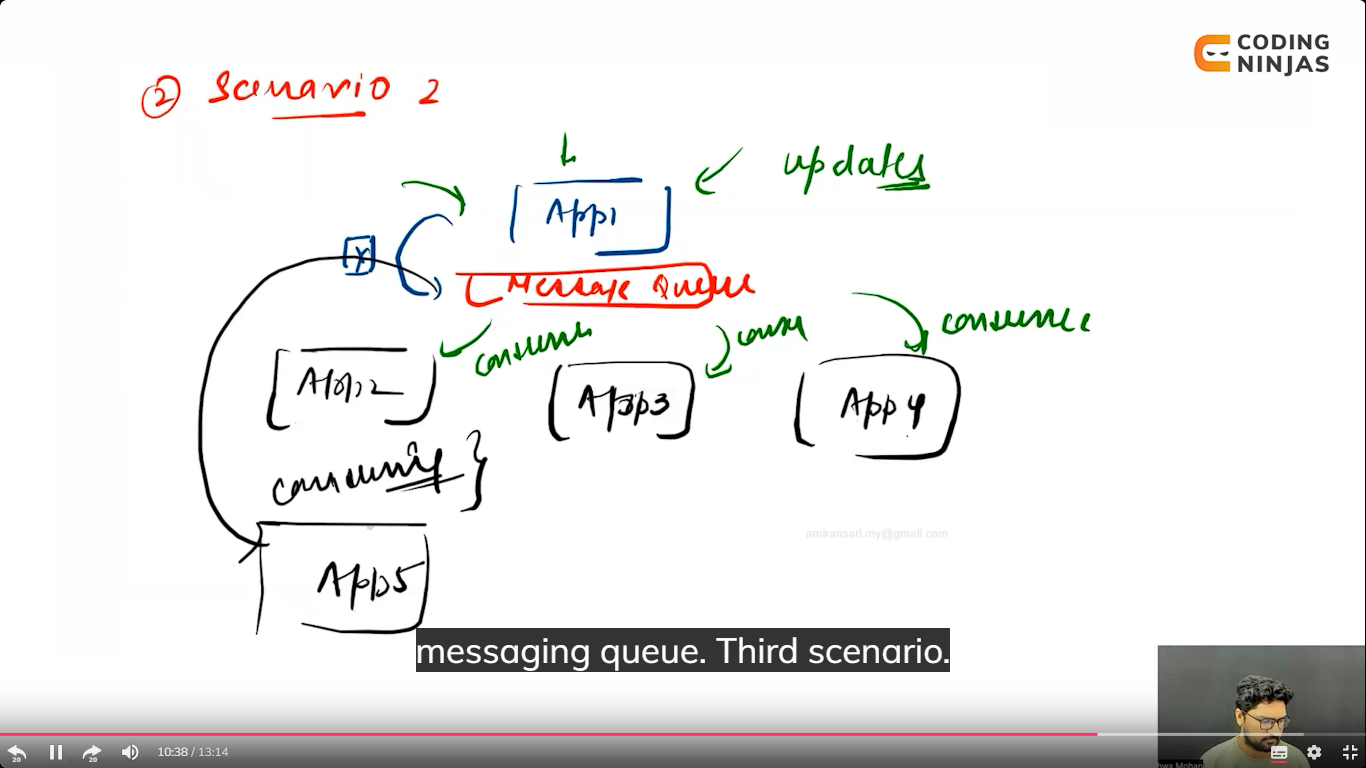 CODING
NINJAS
② Scenario 2
updates
App1
x
Message Queue
consume
consume
App2
App3
App4
consuming }
amiransari.my@gmail.com
App5
messaging queue. Third scenario.
20
20
10:38 / 13:14